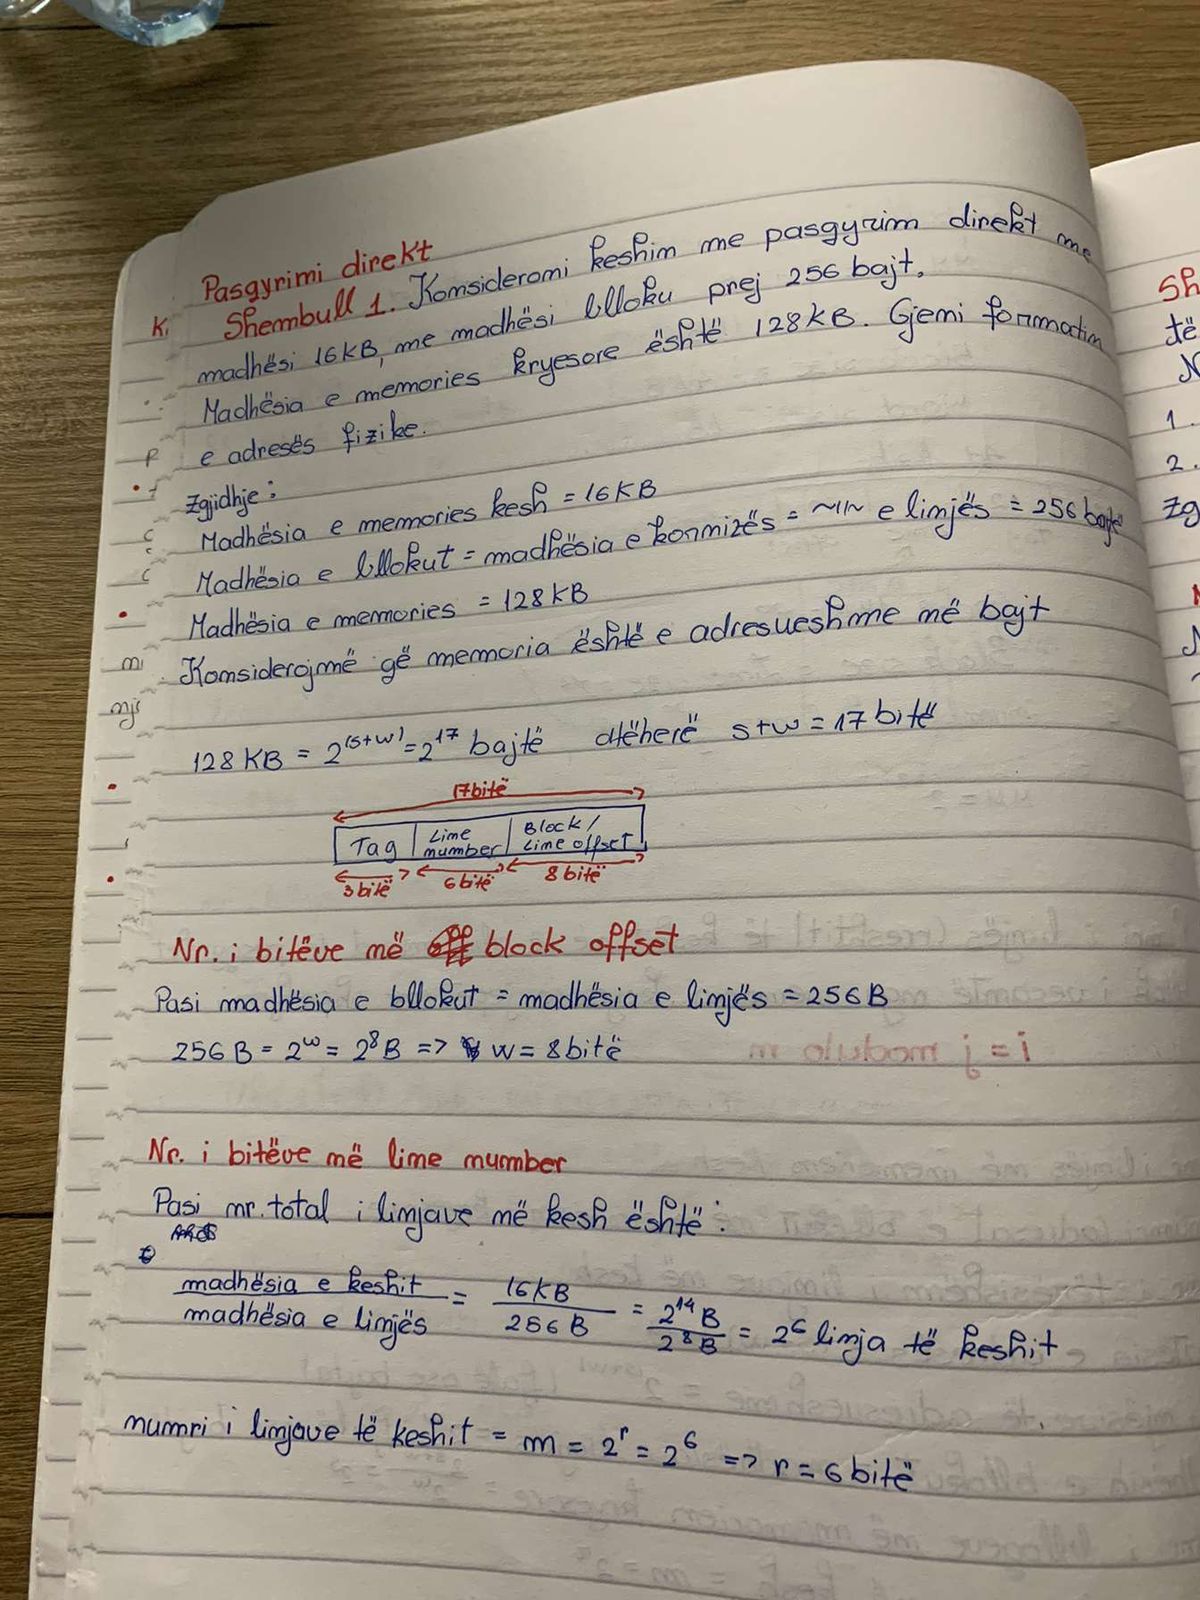 Pasqyrimi direkt
Shembull 1. Konsideroni keshim me pasqyrim direkt me
madhësi 16KB, me madhësi blloku prej 256 bajt.
Madhësia e memories kryesore është 128KB. Gjeni formatin
e adresës fizike.
Zgjidhje:
Madhësia e memories kesh = 16KB
Madhësia e bllokut = madhësia e kornizës = ~11~ e linjës = 256 bajtë
Madhësia e memories = 128KB
Konsiderojmë që memoria është e adresueshme në bajt
128 KB = 2^(s+w) = 2^17 bajtë atëherë s+w = 17 bitë
17 bitë
Tag Line number Block / Line offset
3 bitë 6 bitë 8 bitë
Nr. i bitëve në block offset
Pasi madhësia e bllokut = madhësia e linjës = 256 B
256 B = 2^w = 2^8 B => w = 8 bitë
Nr. i bitëve në line number
Pasi nr. total i linjave në kesh është:
madhësia e keshit / madhësia e linjës = 16KB / 256 B = 2^14 B / 2^8 B = 2^6 linja të keshit
numri i linjave të keshit = m = 2^r = 2^6 => r = 6 bitë
Sh
të
N
1.
2.
Zg